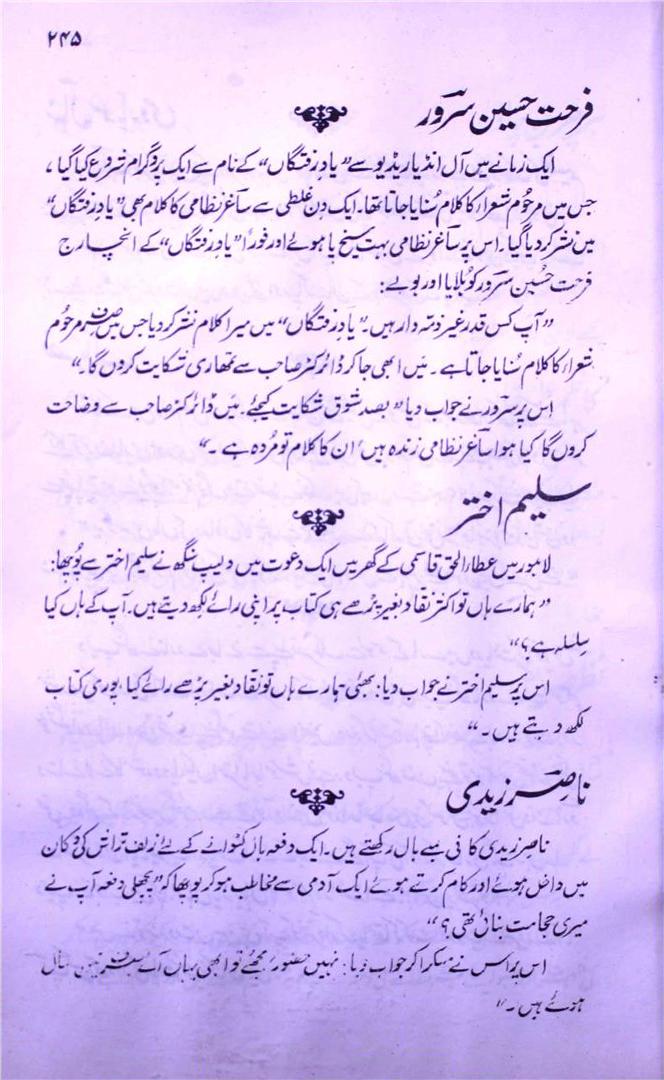 ۲۴۵
فرحت حسین سرور
ایک زمانے میں آل انڈیا ریڈیو سے ”یادِ رفتگاں“ کے نام سے ایک پروگرام شروع کیا گیا،
جس میں مرحُوم شعراء کا کلام سُنایا جاتا تھا۔ ایک دن غلطی سے ساغر نظامی کا کلام بھی ”یادِ رفتگاں“
میں نشر کر دیا گیا۔ اس پر ساغر نظامی بہت سیخ پا ہوئے اور فوراً ”یادِ رفتگاں“ کے انچارج
فرحت حُسین سرور کو بُلایا اور بولے:
”آپ کس قدر غیر ذمّہ دار ہیں۔ ”یادِ رفتگاں“ میں میرا کلام نشر کر دیا جس میں صرف مرحُوم
شعراء کا کلام سُنایا جاتا ہے۔ میں ابھی جا کر ڈائرکٹر صاحب سے تمھاری شکایت کروں گا۔“
اس پر سرور نے جواب دیا ”بصد شوق شکایت کیجئے۔ میں ڈائرکٹر صاحب سے وضاحت
کروں گا کیا ہوا ساغر نظامی زندہ ہیں، ان کا کلام تو مُردہ ہے۔“
سلیم اختر
لاہور میں عطاء الحق قاسمی کے گھر میں ایک دعوت میں دلیپ سنگھ نے سلیم اختر سے پُوچھا:
”ہمارے ہاں تو اکثر نقاد بغیر پڑھے ہی کتاب پر اپنی رائے لکھ دیتے ہیں۔ آپ کے ہاں کیا
سلسلہ ہے؟“
اس پر سلیم اختر نے جواب دیا: بھئی ہمارے ہاں تو نقاد بغیر پڑھے رائے کیا، پوری کتاب
لکھ دیتے ہیں۔“
ناصر زیدی
ناصر زیدی کافی لمبے بال رکھتے ہیں۔ ایک دفعہ بال کٹوانے کے لئے زلف تراش کی دُکان
میں داخل ہوئے اور کام کرتے ہوئے ایک آدمی سے مخاطب ہو کر پوچھا کہ ”پچھلی دفعہ آپ نے
میری حجامت بنائی تھی؟“
اس پر اس نے مسکرا کر جواب دیا: نہیں حضور، مجھے تو ابھی یہاں آئے صرف تین سال
ہوئے ہیں۔“